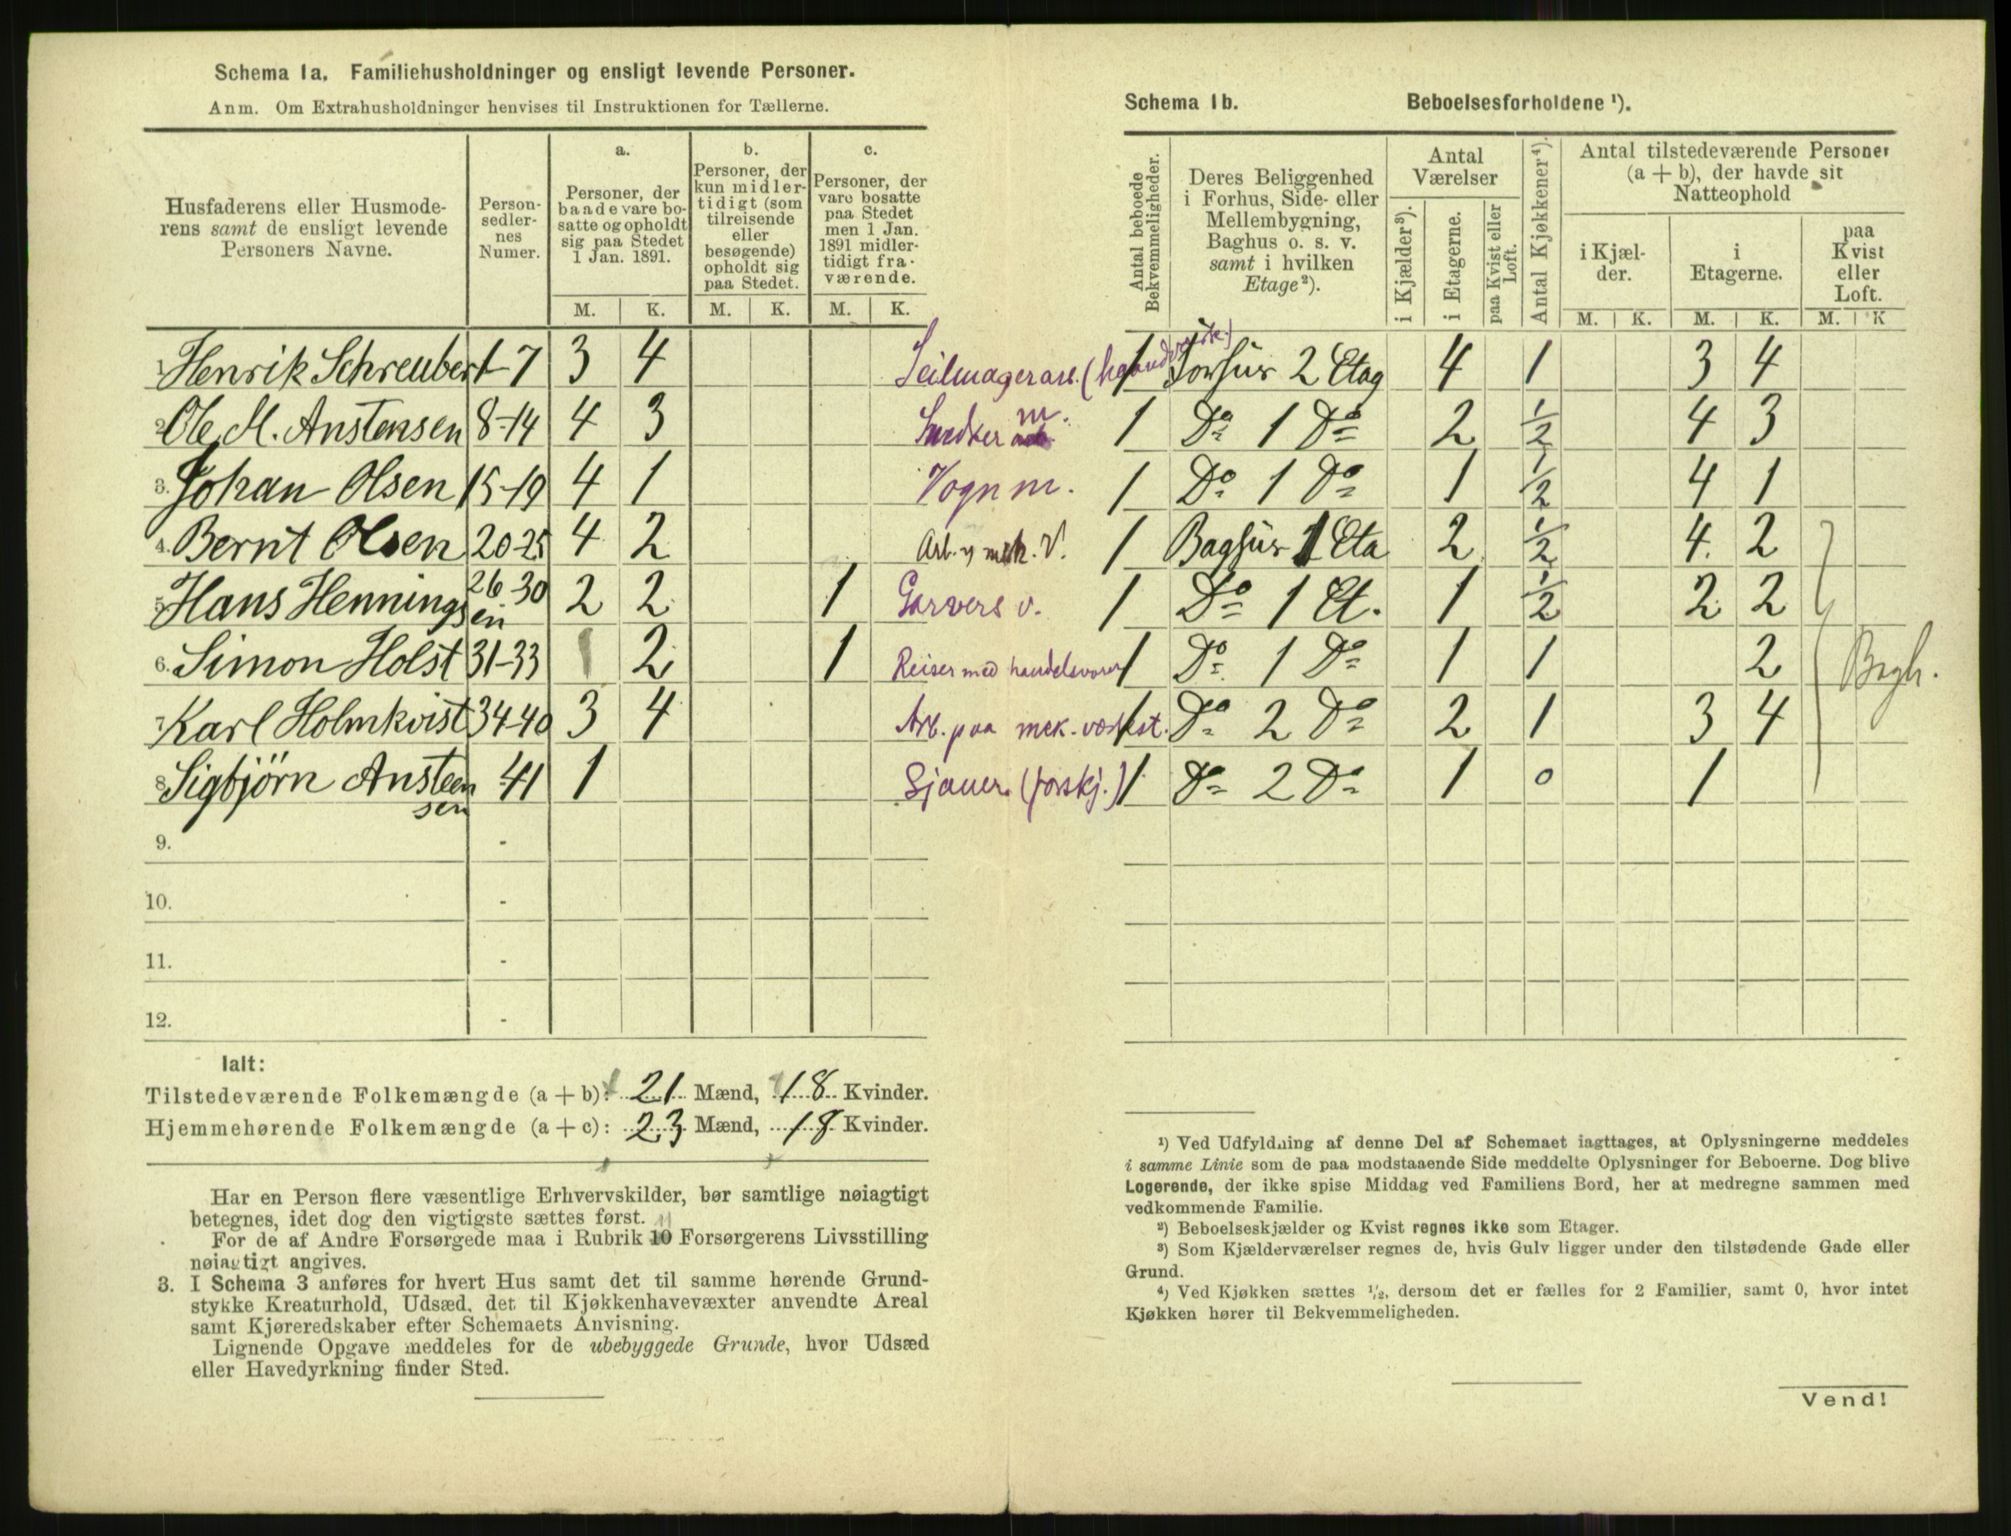 Schema 1a. Familiehusholdninger og ensligt levende Personer.
Anm. Om Extrahusholdninger henvises til Instruktionen for Tællerne.
Husfaderens eller Husmoderens samt de ensligt levende Personers Navne.
Personsedlernes Numer.
a.
Personer, der baade vare bosatte og opholdt sig paa Stedet 1 Jan. 1891.
b.
Personer, der kun midlertidigt (som tilreisende eller besøgende) opholdt sig paa Stedet.
c.
Personer, der vare bosatte paa Stedet men 1 Jan. 1891 midlertidigt fraværende.
M. K. M. K. M. K.
1. Henrik Schreuber 1-7 3 4
2. Ole M. Anstensen 8-14 4 3
3. Johan Olsen 15-19 4 1
4. Bernt Olsen 20-25 4 2
5. Hans Henningsen 26-30 2 2 1
6. Simon Holst 31-33 2 1
7. Karl Holmkvist 34-40 3 4
8. Sigbjörn Ansteensen 41 1
9. -
10. -
11. -
12. -
Ialt:
Tilstedeværende Folkemængde (a + b): 21 Mænd, 18 Kvinder.
Hjemmehørende Folkemængde (a + c): 23 Mænd, 18 Kvinder.
Har en Person flere væsentlige Erhvervskilder, bør samtlige nøiagtigt
betegnes, idet dog den vigtigste sættes først.
For de af Andre Forsørgede maa i Rubrik 10 Forsørgerens Livsstilling
nøiagtigt angives.
3. I Schema 3 anføres for hvert Hus samt det til samme hørende Grund-
stykke Kreaturhold, Udsæd, det til Kjøkkenhavevæxter anvendte Areal
samt Kjøreredskaber efter Schemaets Anvisning.
Lignende Opgave meddeles for de ubebyggede Grunde, hvor Udsæd
eller Havedyrkning finder Sted.
Schema 1b. Beboelsesforholdene ¹).
Antal beboede Bekvemmeligheder.
Deres Beliggenhed i Forhus, Side- eller Mellembygning, Baghus o. s. v. samt i hvilken Etage²).
Antal Værelser
i Kjælder³).
i Etagerne.
paa Kvist eller Loft.
Antal Kjøkkener⁴).
Antal tilstedeværende Personer (a + b), der havde sit Natteophold
i Kjælder.
i Etagerne.
paa Kvist eller Loft.
M. K. M. K. M. K
Seilmagerarb. (haandværk.) 1 Forhus 2 Etag 4 1 3 4
Smedker m. 1 Do 1 Do 2 1/2 4 3
Vognm. 1 Do 1 Do 1 1/2 4 1
Arb. v mek. V. 1 Baghus 1 Eta 2 1/2 4. 2
Garvers v. 1 Do 1 Et. 1 1/2 2 2
Reiser med handelsvarer 1 Do 1 Do 1 1 2
Arb. paa mek. værkst. 1 Do 2 Do 2 1 3 4
Sjauer. (forskj.) 1 Do 2 Do 1 0 1
Bagh.
¹) Ved Udfyldning af denne Del af Schemaet iagttages, at Oplysningerne meddeles
i samme Linie som de paa modstaaende Side meddelte Oplysninger for Beboerne. Dog blive
Logerende, der ikke spise Middag ved Familiens Bord, her at medregne sammen med
vedkommende Familie.
²) Beboelseskjælder og Kvist regnes ikke som Etager.
³) Som Kjælderværelser regnes de, hvis Gulv ligger under den tilstødende Gade eller
Grund.
⁴) Ved Kjøkken sættes 1/2, dersom det er fælles for 2 Familier, samt 0, hvor intet
Kjøkken hører til Bekvemmeligheden.
Vend!